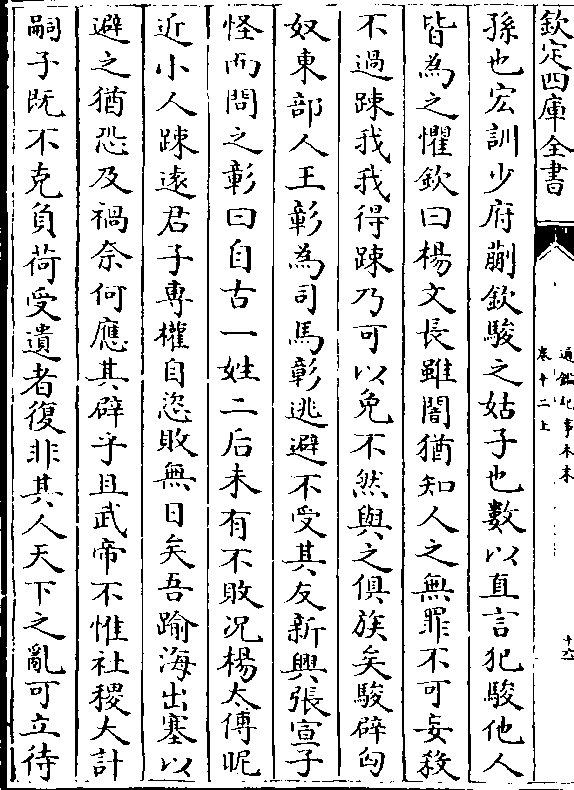 欽定四庫全書
通鑑紀事本末
卷十二上
孫也宏訓少府蒯欽駿之姑子也數以直言犯駿他人
皆為之懼欽曰楊文長雖闇猶知人之無罪不可妄殺
不過踈我我得踈乃可以免不然與之俱族矣駿辟匈
奴東部人王彰為司馬彰逃避不受其友新興張宣子
怪而問之彰曰自古一姓二后未有不敗况楊太傅昵
近小人踈逺君子專權自恣敗無日矣吾踰海出塞以
避之猶恐及禍奈何應其辟乎且武帝不惟社稷大計
嗣子既不克負荷受遺者復非其人天下之亂可立待